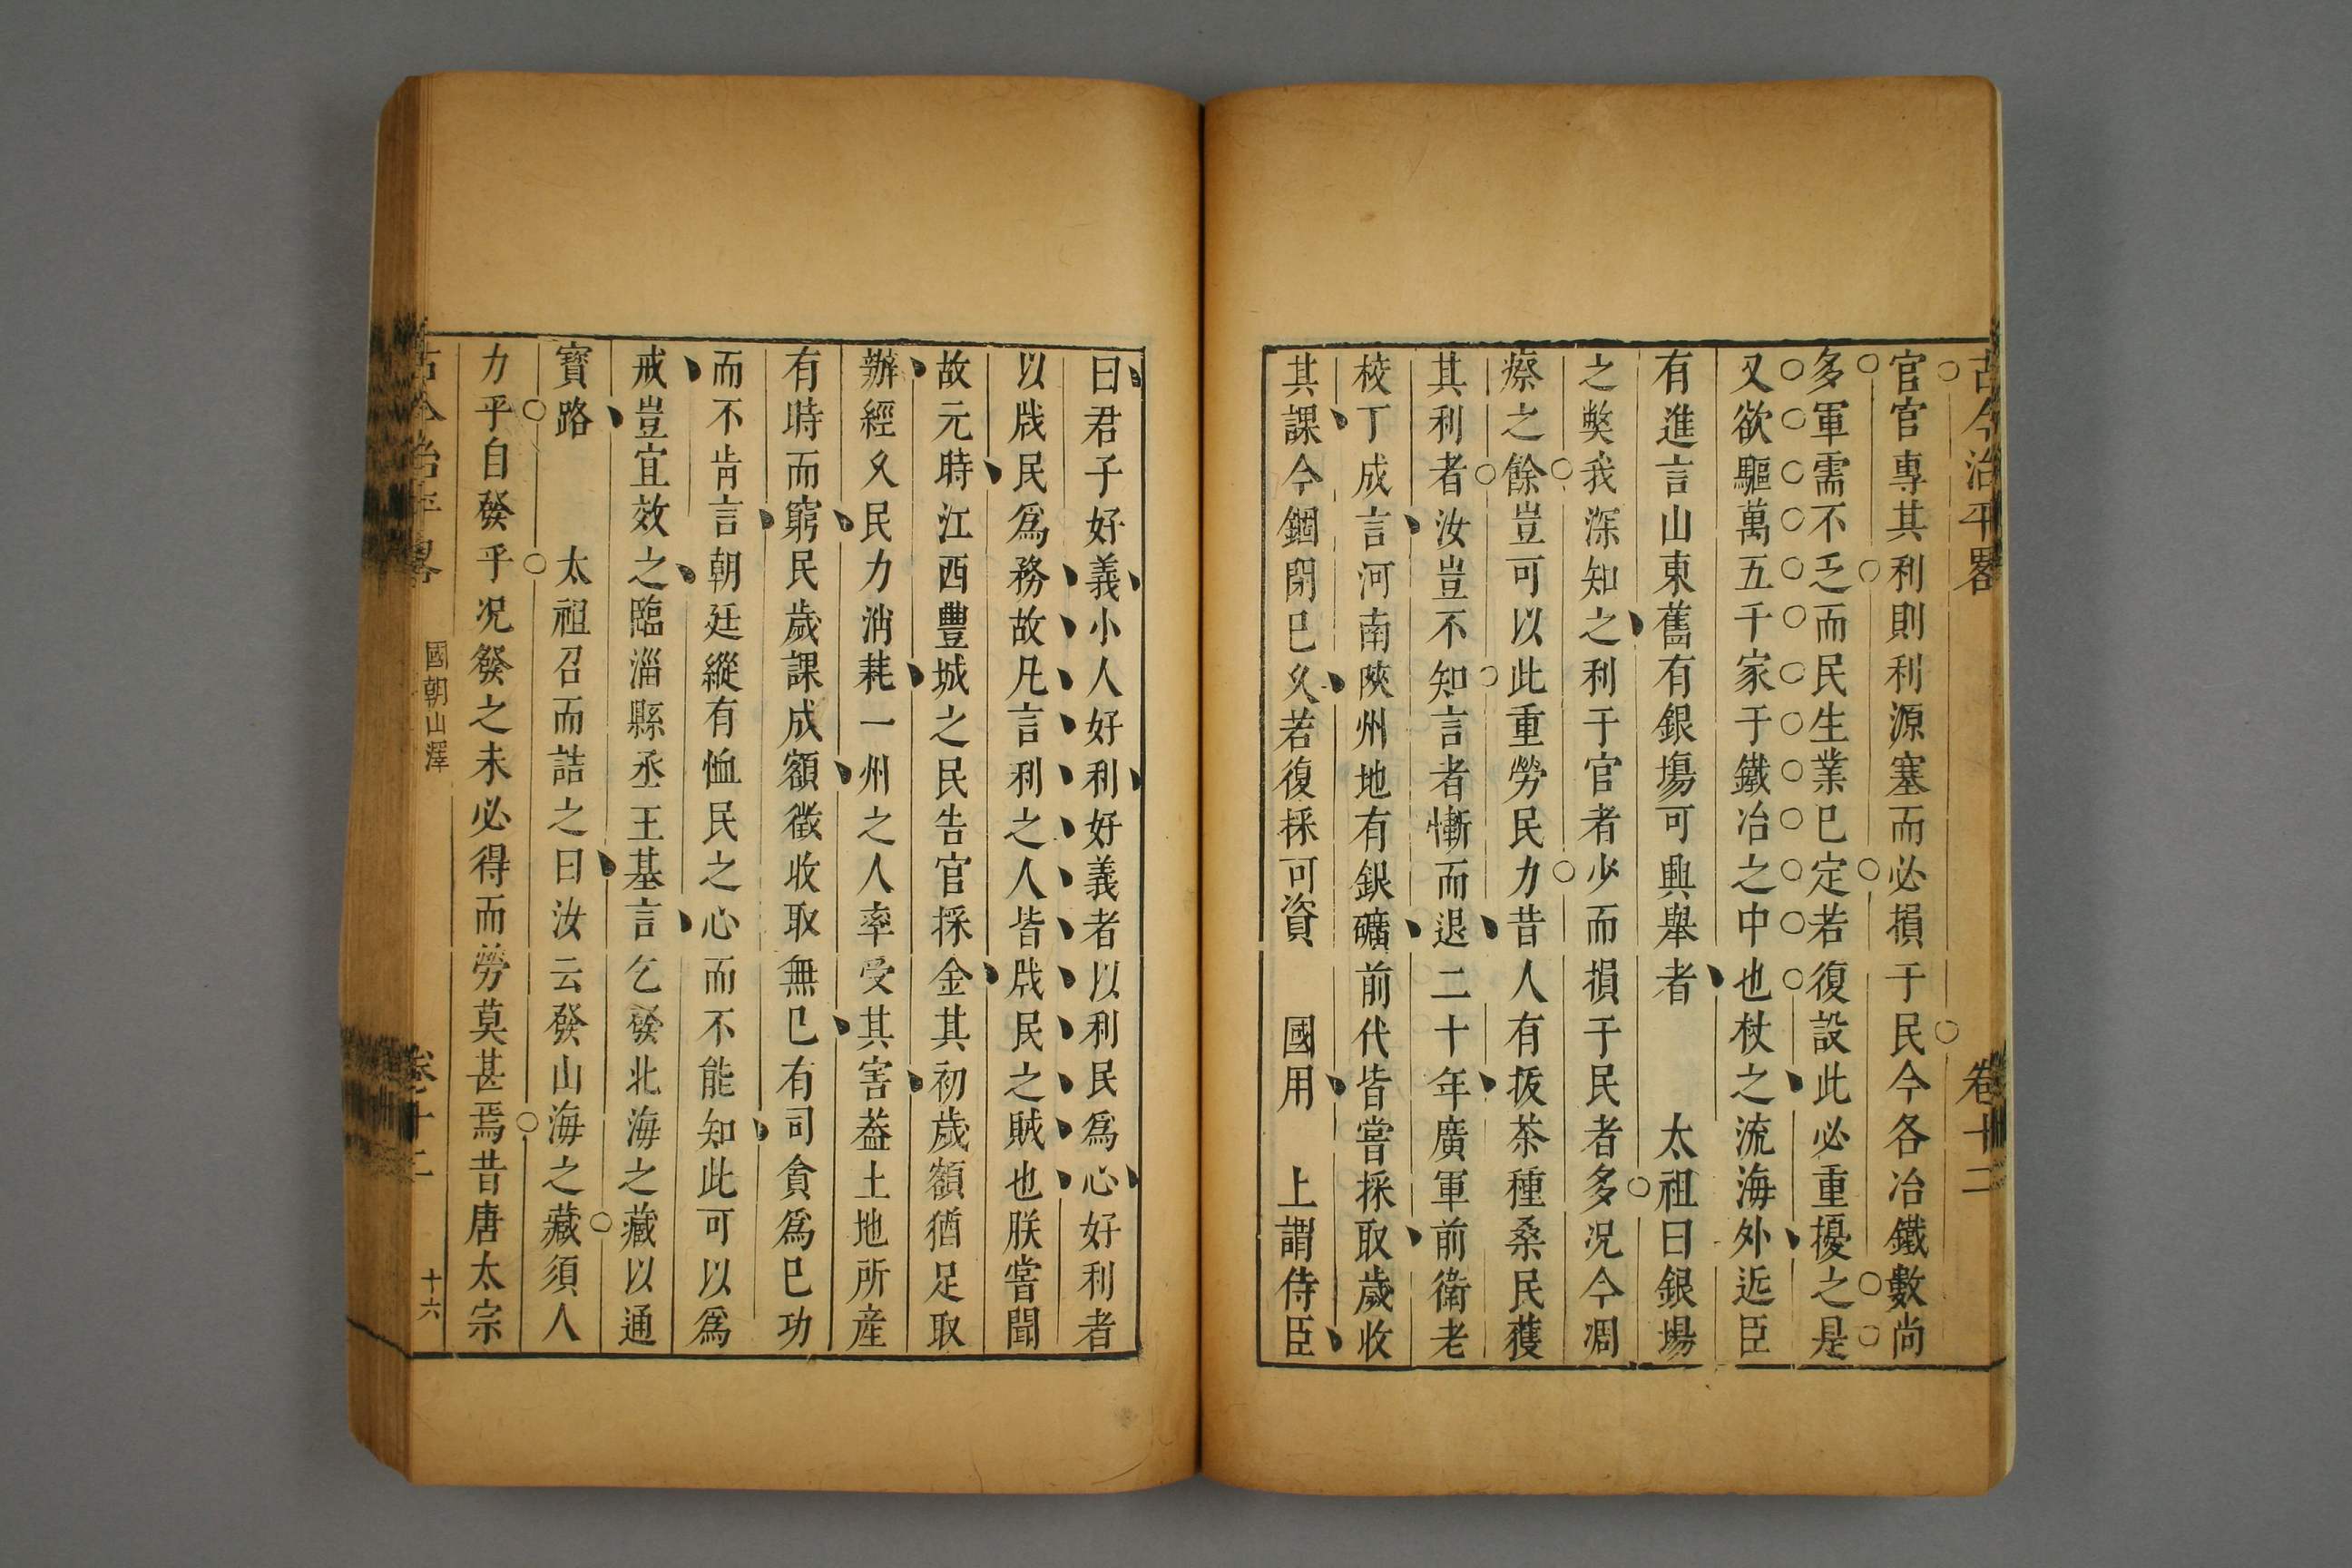 古今治平畧 卷十二
官官專其利則利源塞而必損于民今各冶鐵數尚
多軍需不乏而民生業已定若復設此必重擾之是
又欲驅萬五千家于鐵冶之中也杖之流海外近臣
有進言山東舊有銀塲可興舉者 太祖曰銀場
之獘我深知之利于官者少而損于民者多况今凋
瘵之餘豈可以此重勞民力昔人有拔茶種桑民獲
其利者汝豈不知言者慚而退二十年廣軍前衛老
校丁成言河南陝州地有銀礦前代皆嘗採取歲收
其課今錮閉已久若復採可資 國用 上謂侍臣
曰君子好義小人好利好義者以利民爲心好利者
以戕民爲務故凡言利之人皆戕民之賊也朕嘗聞
故元時江西豐城之民告官採金其初歲額猶足取
辦經久民力消耗一州之人率受其害葢土地所産
有時而窮民歲課成額徵收取無已有司貪爲已功
而不肯言朝廷縱有恤民之心而不能知此可以爲
戒豈宜效之臨淄縣丞王基言乞發北海之藏以通
寶路 太祖召而詰之曰汝云發山海之藏須人
力乎自發乎况發之未必得而勞莫甚焉昔唐太宗
古今治平畧 國朝山澤 卷十二 十六